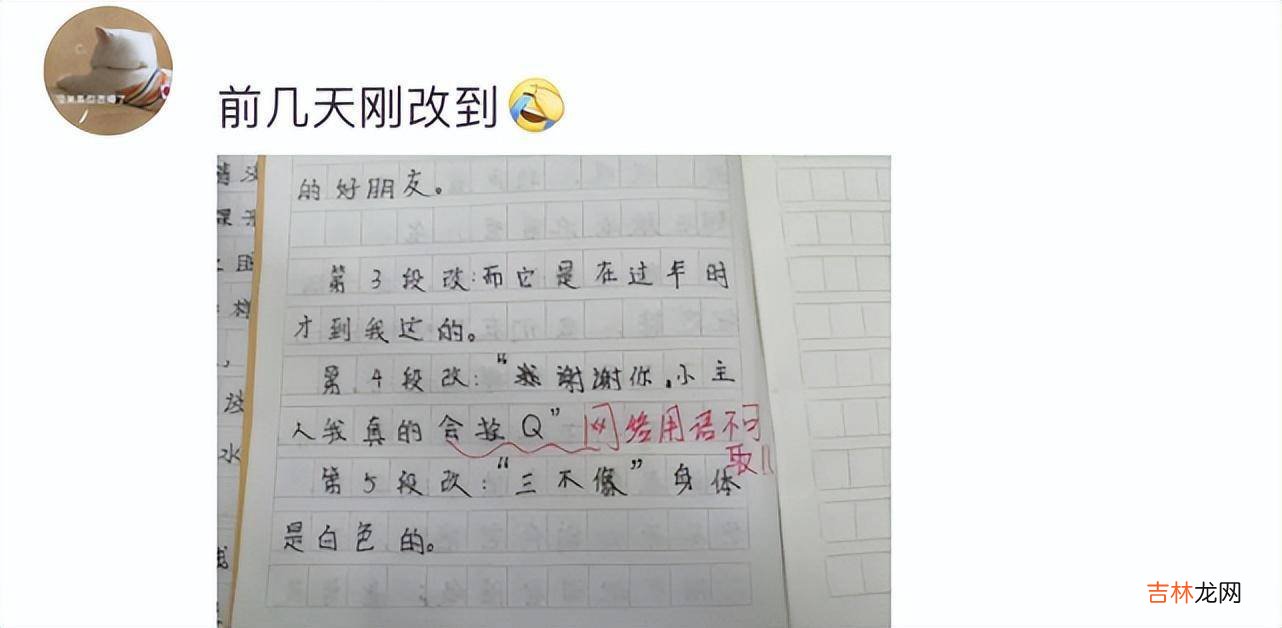 前几天刚改到
的好朋友。
第3段改:而它是在过年时
才到我这的。
第4段改:“谢谢你,小主
人我真的会栓Q”网络用语不可
取!!
第5段改:“三不像”身体
是白色的。
吉林龙网